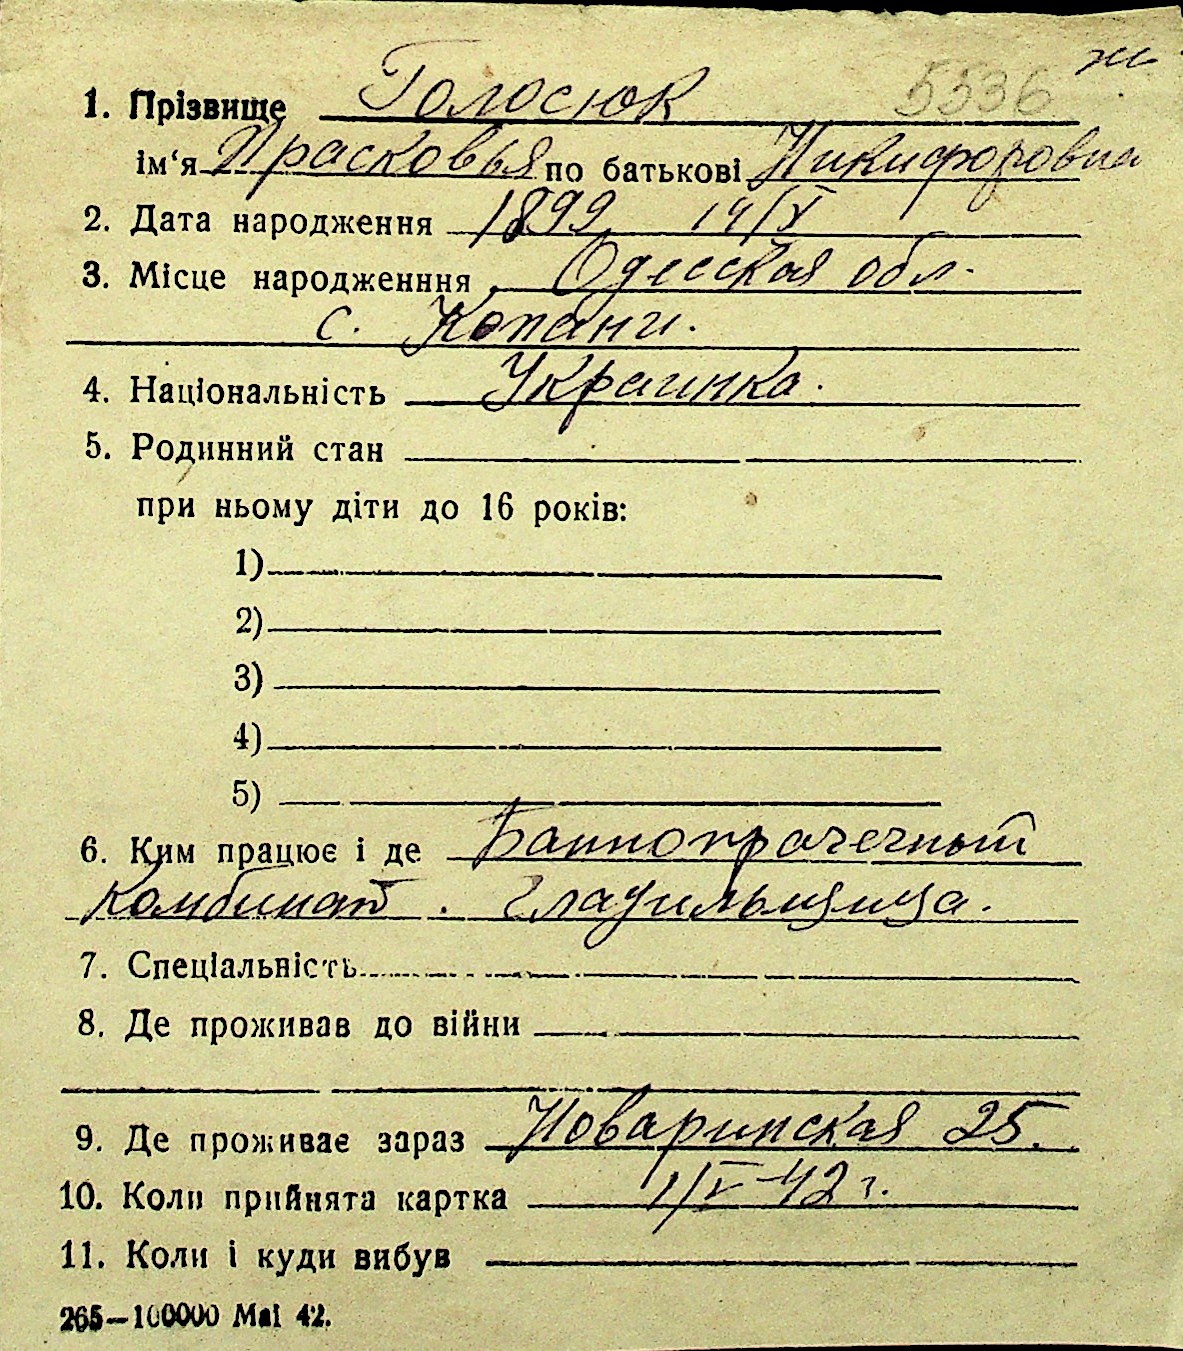 5536 ж
1. Прізвище Голосюк
ім‘я Прасковья по батькові Никифоровна
2. Дата народження 1899 14/V
3. Місце народженння Одесская обл.
с. Копани.
4. Національність Украинка.
5. Родинний стан
при ньому діти до 16 років:
1)
2)
3)
4)
5)
6. Ким працює і де Баннопрачечный
комбинат. гладильщица.
7. Спеціальність
8. Де проживав до війни
9. Де проживає зараз Новаринская 25.
10. Коли прийнята картка 1/V-42 г.
11. Коли і куди вибув
265—100000 Маі 42.